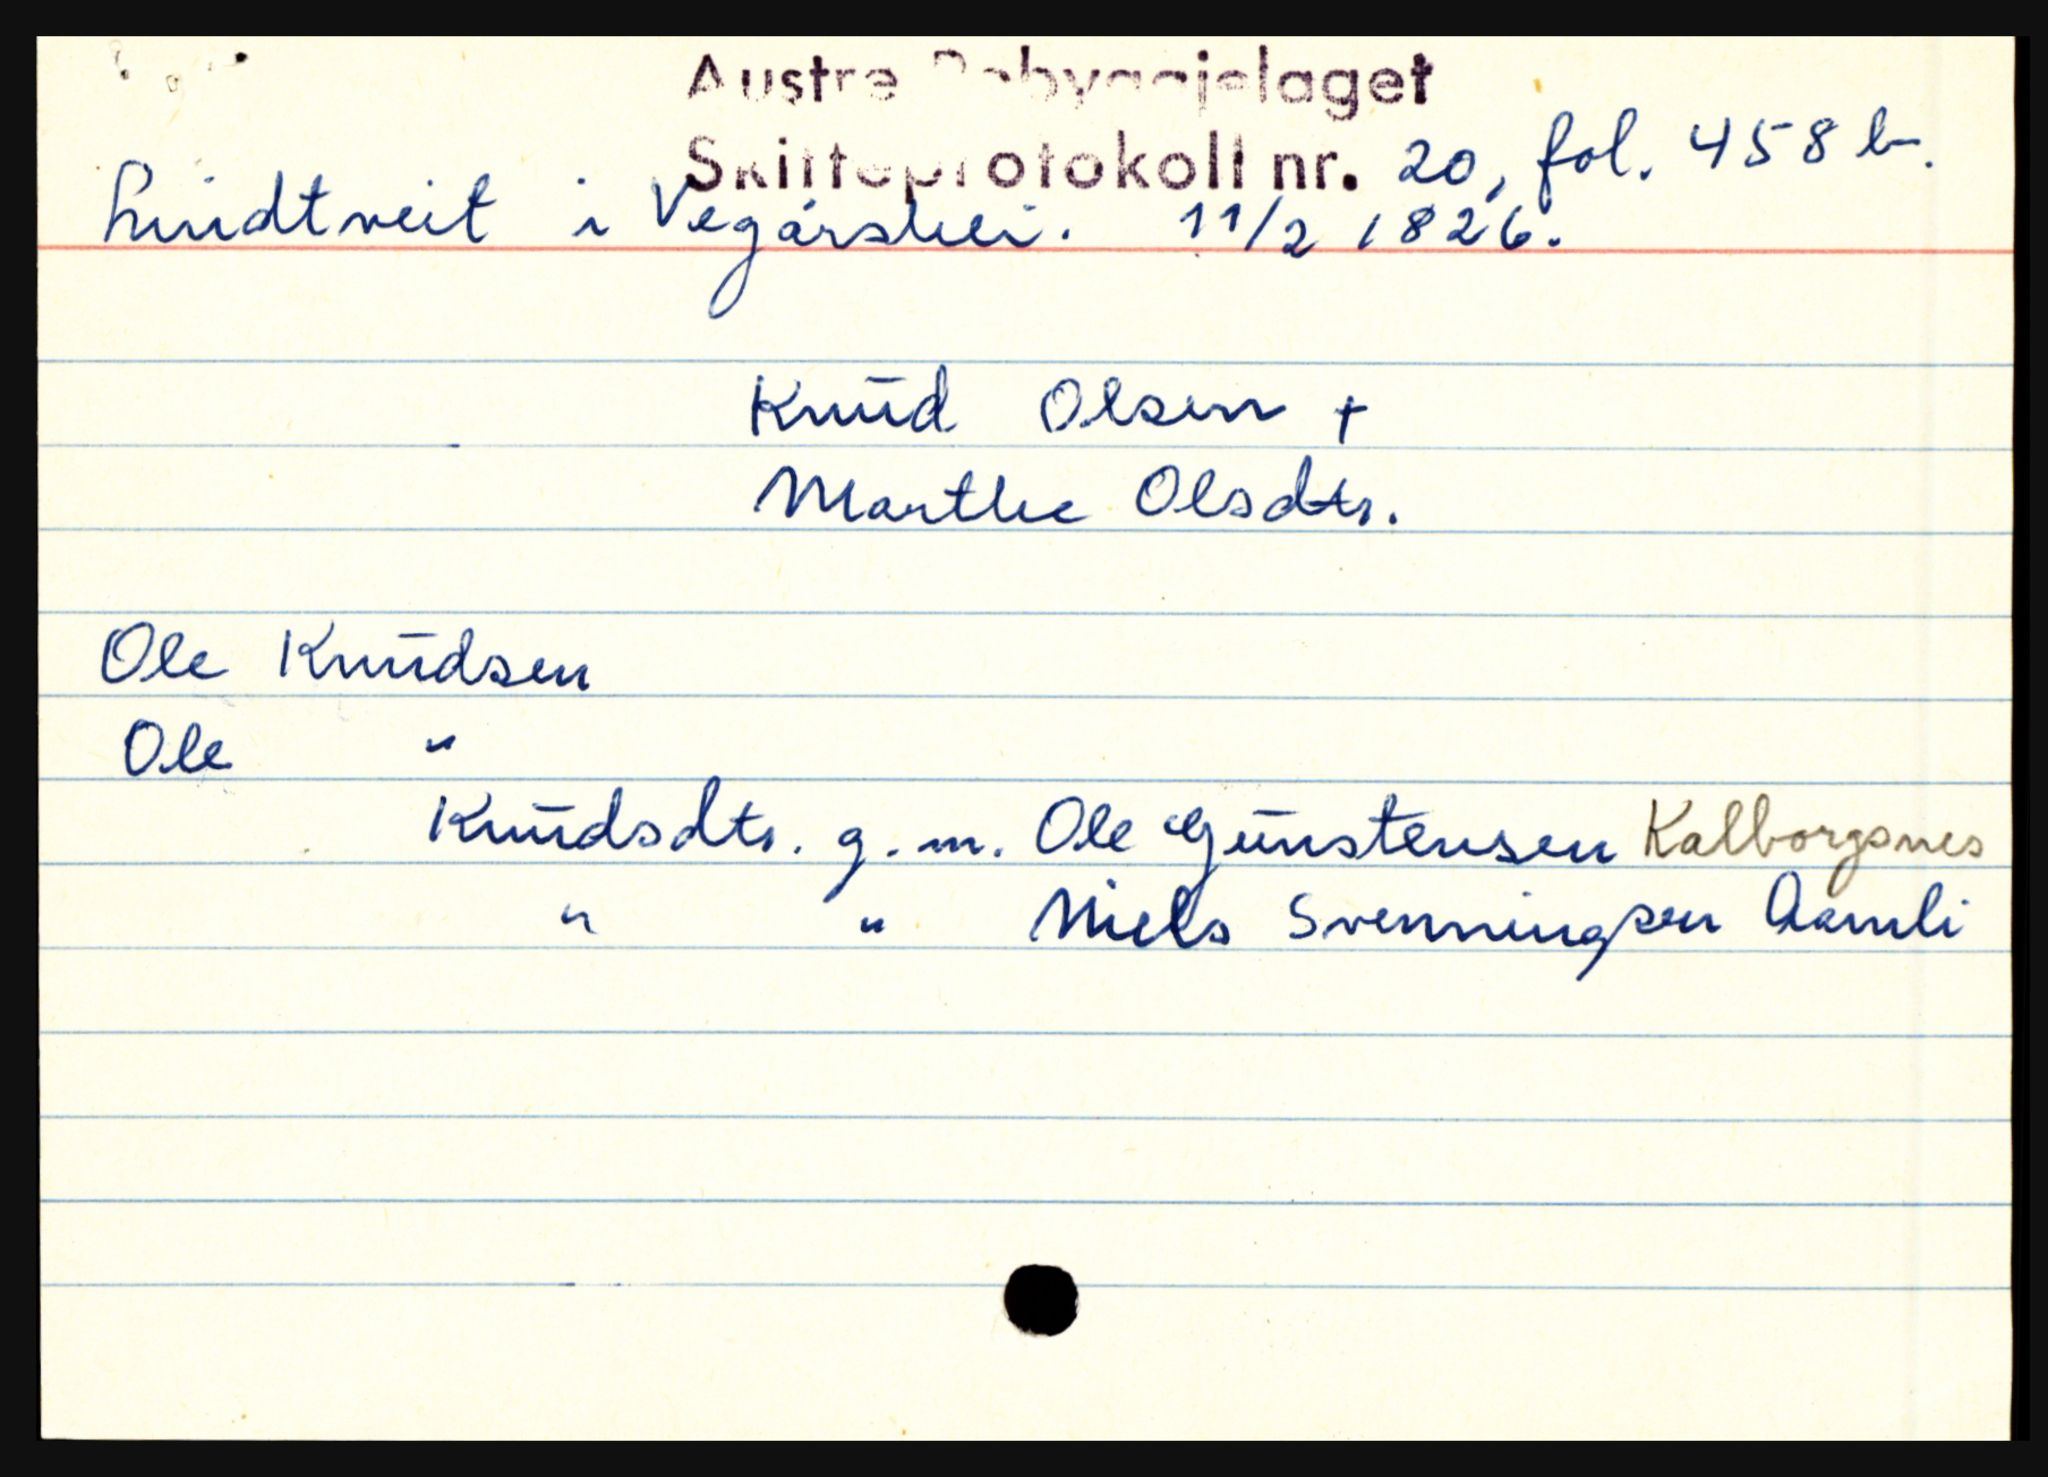 Austre Robyggjelaget
Skifteprotokoll nr. 20, fol. 458 b.
Lindtveit i Vegårshei. 11/2 1826.
Knud Olsen +
Marthe Olsdtr.
Ole Knudsen
Ole "
Knudsdtr. g. m. Ole Gunstensen Kalborgsnes
" " Niels Svenningsen Aamli